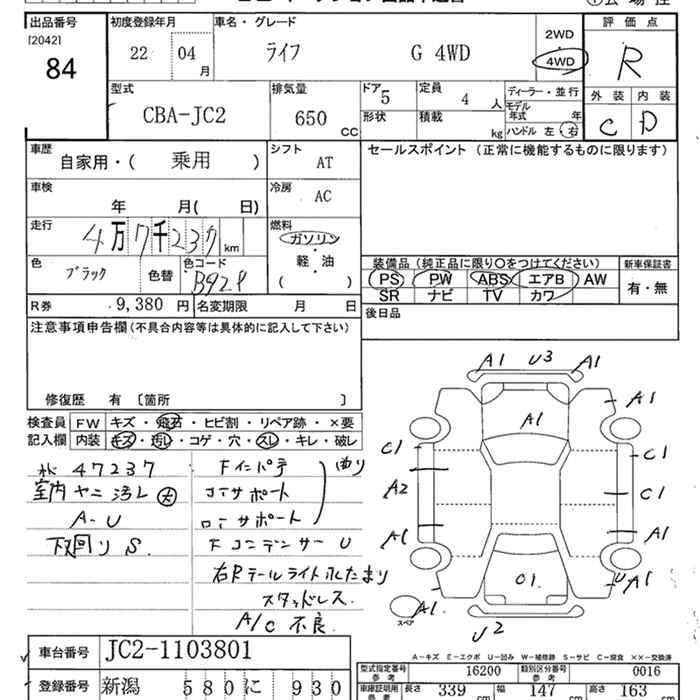 出品番号 初度登録年月 車名・グレード 2WD 評価点
[2042]
84 22 04 月 ライフ G 4WD 4WD R
型式 排気量 ドア 定員 ディーラー・並行 外装 内装
CBA-JC2 650 CC 5 4 人 モデル年式 年 C D
形状 積載 kg ハンドル 左・右
車歴 自家用・(乗用) シフト AT セールスポイント (正常に機能するものに限ります)
車検 年 月( 日) 冷房 AC
走行 4万7千237 km 燃料 ガソリン・軽・油 ( )
色 ブラック 色替 色コード B92P
装備品 (純正品に限り〇をつけてください) 新車保証書
PS PW ABS エアB AW 有・無
SR ナビ TV カワ
R券 9,380 円 名変期限 月 日
後日品
注意事項申告欄(不具合内容等は具体的に記入して下さい)
修復歴 有 〔箇所 〕
検査員 FW キズ・飛石・ヒビ割・リペア跡・×要
記入欄 内装 キズ・汚レ・コゲ・穴・スレ・キレ・破レ
47237
室内ヤニ汚レ 大
A-U
下回りS
Fインパテ
コアサポート
ロアサポート
曲り
Fコンデンサーu
右Rテールライト水たまり
スタッドレス
A/C 不良
A1 U3 A1
A1
A1
C1 C1
A2 C1
A1 A1
C1
A1 U A1
スペア
U2
A-キズ E-エクボ U-凹み W-補修跡 S-サビ C-腐食 ××-交換済
車台番号 JC2-1103801
登録番号 新潟 580 に 930
型式指定番号 参考 16200 類別区分番号 参考 0016
車庫証明用 参考 長さ 339 cm 幅 147 cm 高さ 163 cm